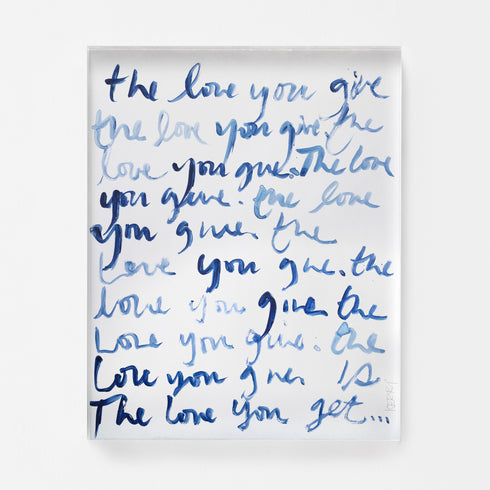 the love you give
the love you give. the
love you give. The love
you give. the love
you give. the
Love you give. the
love you give. the
Love you give. the
love you give is
The love you get...